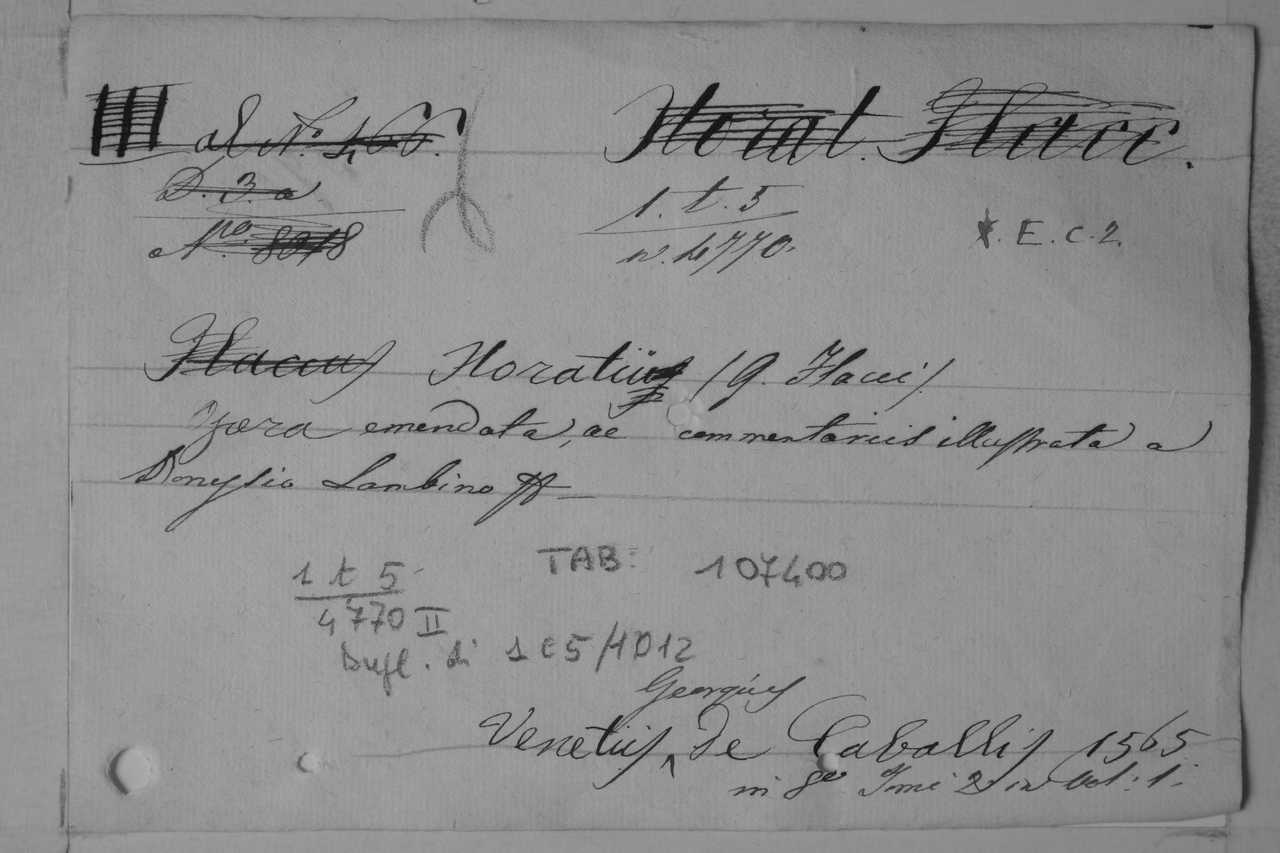 Horat. Flacc.
D. 3. a
1. t. 5
N.ro 8018
n. 4770.
E. C. 2.
Flaccus Horatius (Q. Flacci)
Opera emendata, ac commentariis illustrata a
Donysio Lambino
1 t 5
TAB: 107400
4770 II
Dupl. di 1 C 5/1D12
Georgius
Venetiis, de Caballis 1565
in 8o Tomi 2 in Vol: 1.